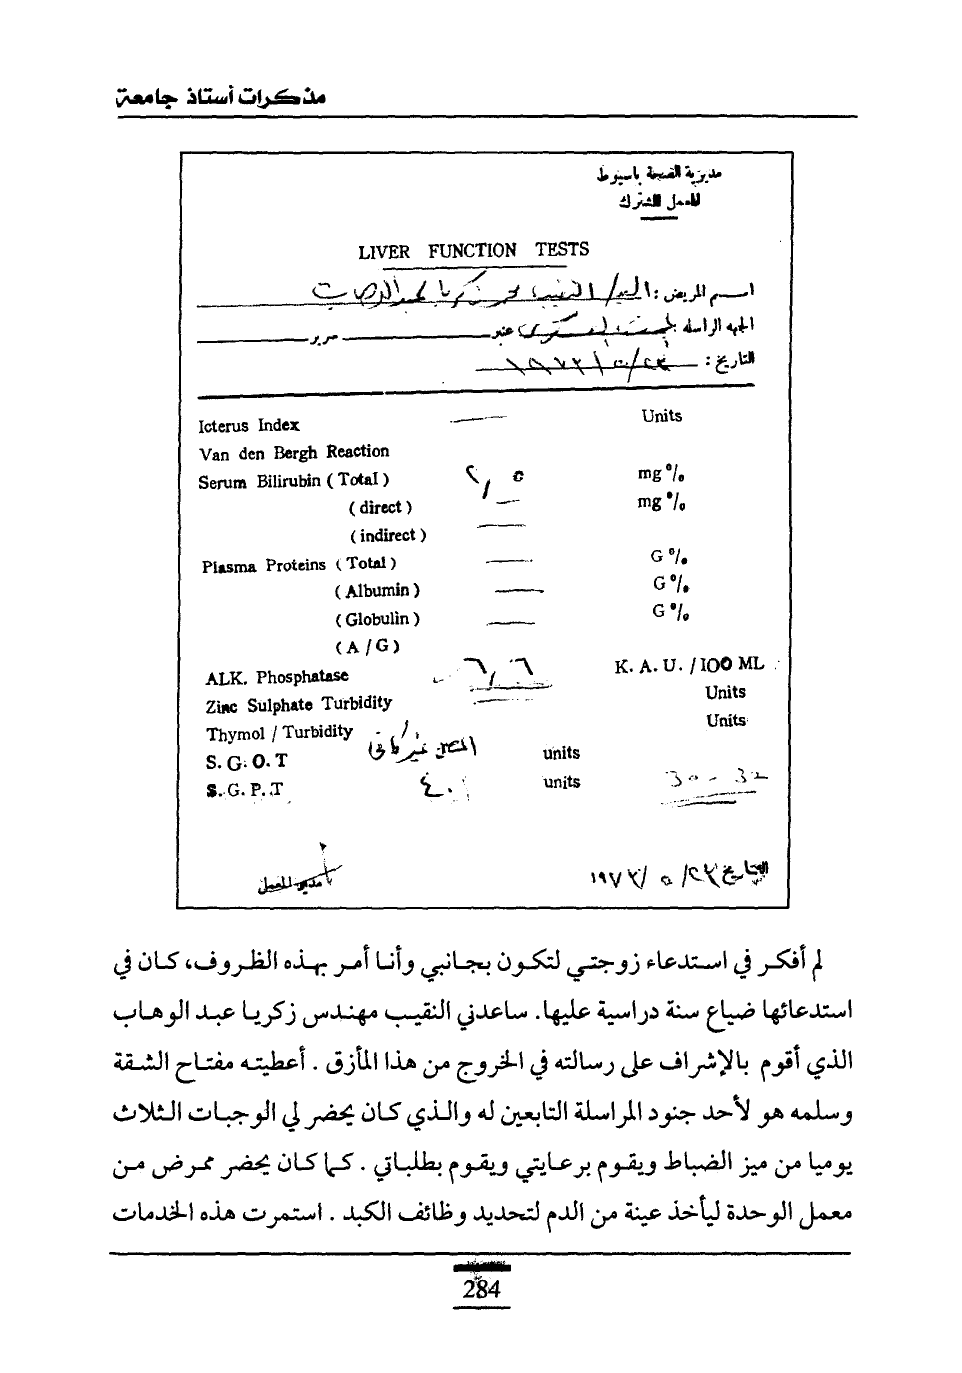 مذكرات أستاذ جامعة
مديرية الصحة باسيوط
المعمل المشترك
LIVER FUNCTION TESTS
اسم المريض: السيد/ النقيب محمد زكريا عبد الوهاب
الجهه الراسله : عنبر سرير
التاريخ : ٢٣/٥/١٩٧٣
Icterus Index Units
Van den Bergh Reaction
Serum Bilirubin ( Total ) ٢,٥ mg %
( direct ) mg %
( indirect )
Plasma Proteins ( Total ) G %
( Albumin ) G %
( Globulin ) G %
( A / G )
ALK. Phosphatase K. A. U. / 100 ML
Zinc Sulphate Turbidity Units
Thymol / Turbidity Units
S. G. O. T units
S. G. P. T ٤٠ units
مدير المعمل
التاريخ ٢٣/ ٥ /١٩٧٣
لم أفكر في استدعاء زوجتي لتكون بجانبي وأنا أمر بهذه الظروف، كان في
استدعائها ضياع سنة دراسية عليها. ساعدني النقيب مهندس زكريا عبد الوهاب
الذي أقوم بالإشراف على رسالته في الخروج من هذا المأزق . أعطيته مفتاح الشقة
وسلمه هو لأحد جنود المراسلة التابعين له والذي كان يحضر لي الوجبات الثلاث
يوميا من ميز الضباط ويقوم برعايتي ويقوم بطلباتي . كما كان يحضر ممرض من
معمل الوحدة ليأخذ عينة من الدم لتحديد وظائف الكبد . استمرت هذه الخدمات
284